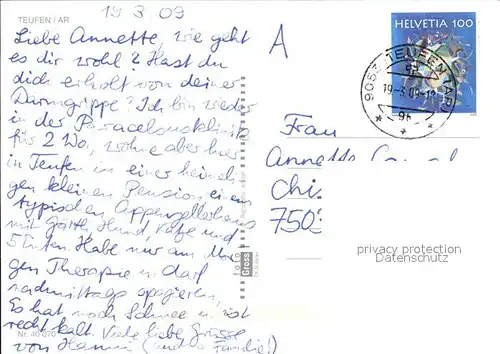 TEUFEN / AR
19 3 09
HELVETIA 100
A
9053 TEUFEN AR
19-3 09-18
Liebe Annette, wie geht
es dir wohl? Hast du
dich erholt von deiner
Darmgrippe? Ich bin wieder
in der Paracelsusklinik
für 2 Wo, wohne aber hier
in Teufen in einer heimeli
gen kleinen Pension, einem
typischen Appenzellerhaus
mit Hund, Katze und
5 Enten. Habe nur am Mor
gen Therapie u. darf
nachmittags spazieren,
Es hat noch Schnee u. ist
recht kalt. Viele liebe Grüsse
von Hanni (und u. Familie!)
Frau
Annette
Chi
750
foto Gross
privacy protection
Datenschutz
Nr. 40 070